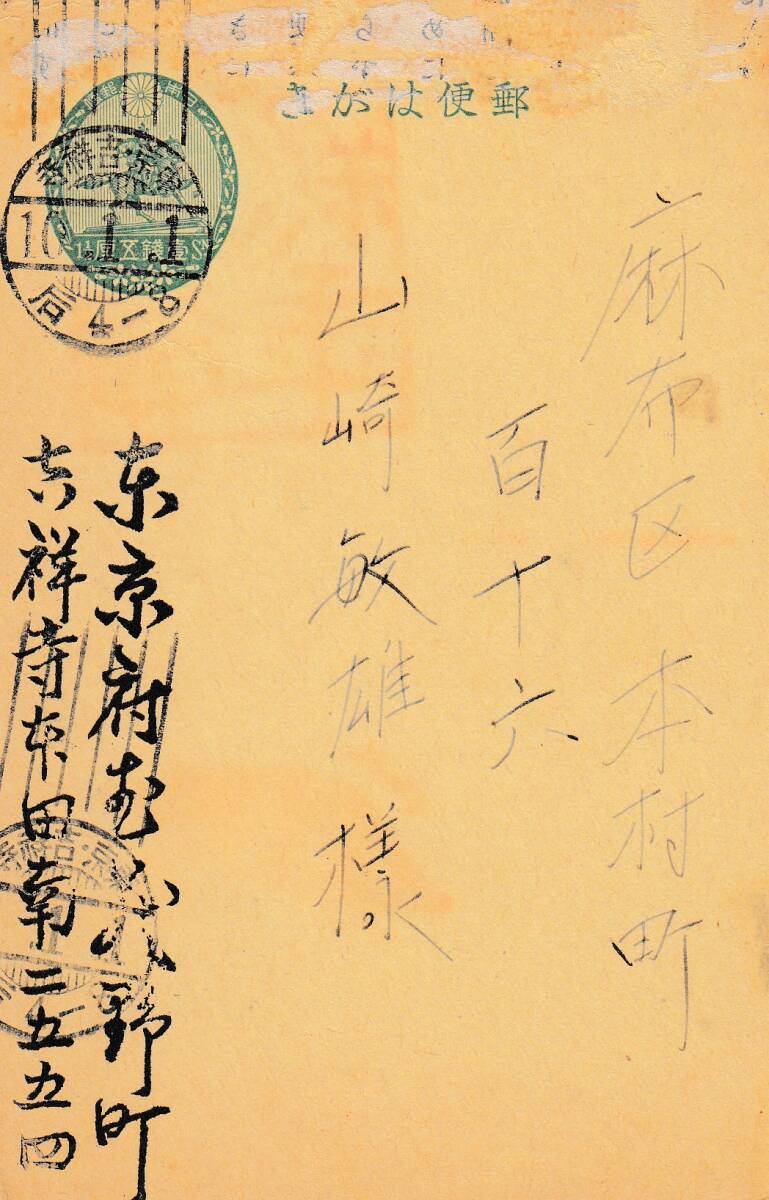 郵便はがき
麻布区本村町
百十六
山崎敏雄様
東京府武蔵野町
吉祥寺東田南二五五四
東京・吉祥寺
10.1.1
后 0-4
壹錢五厘